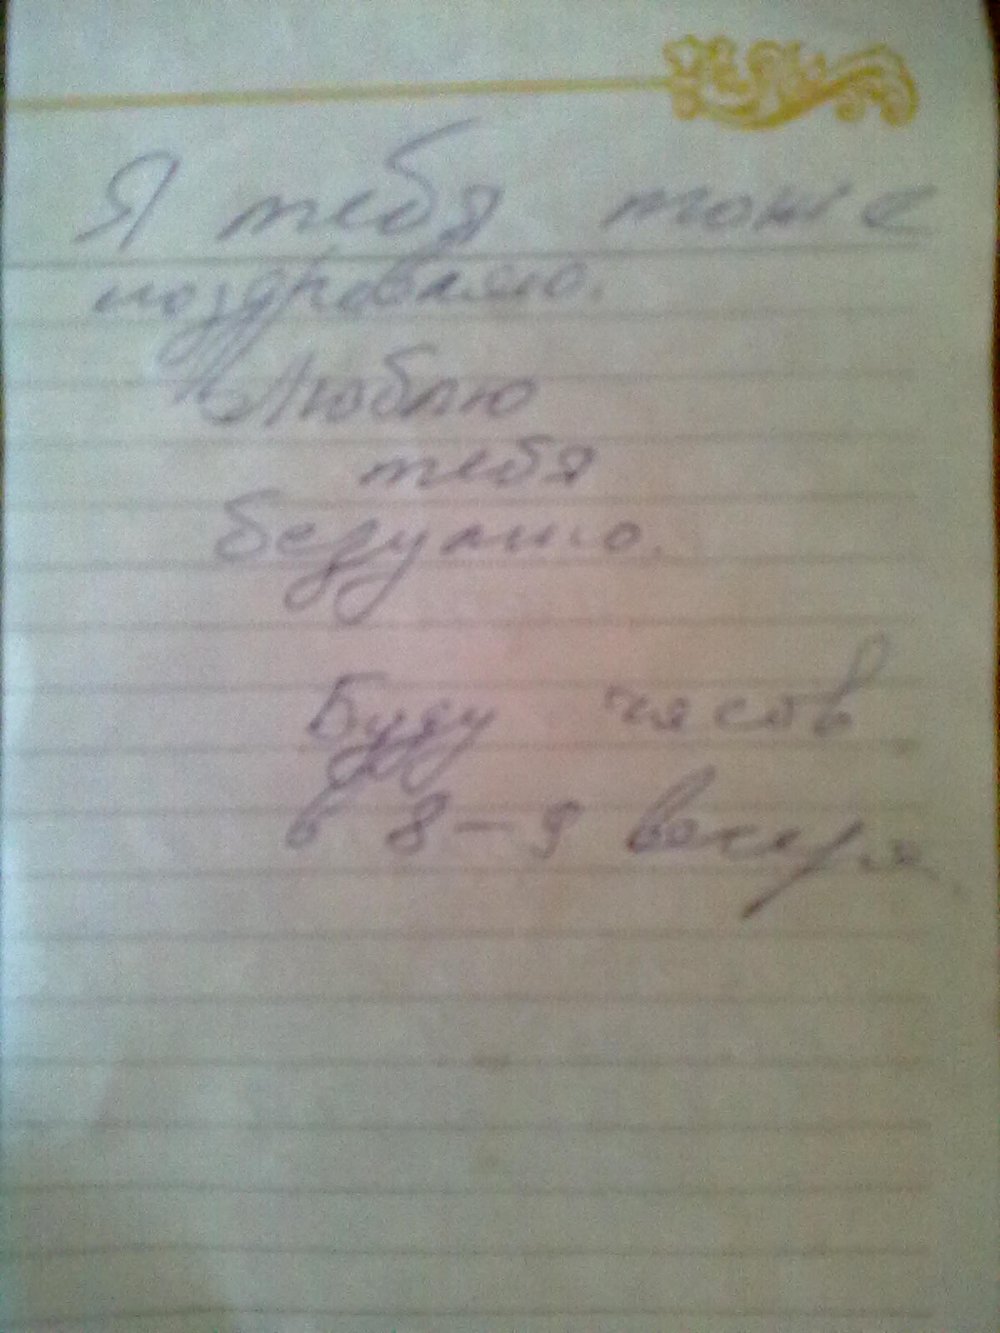 Я тебя тоже
поздравляю.
Люблю
тебя
безумно.
Буду часов
в 8-9 вечера